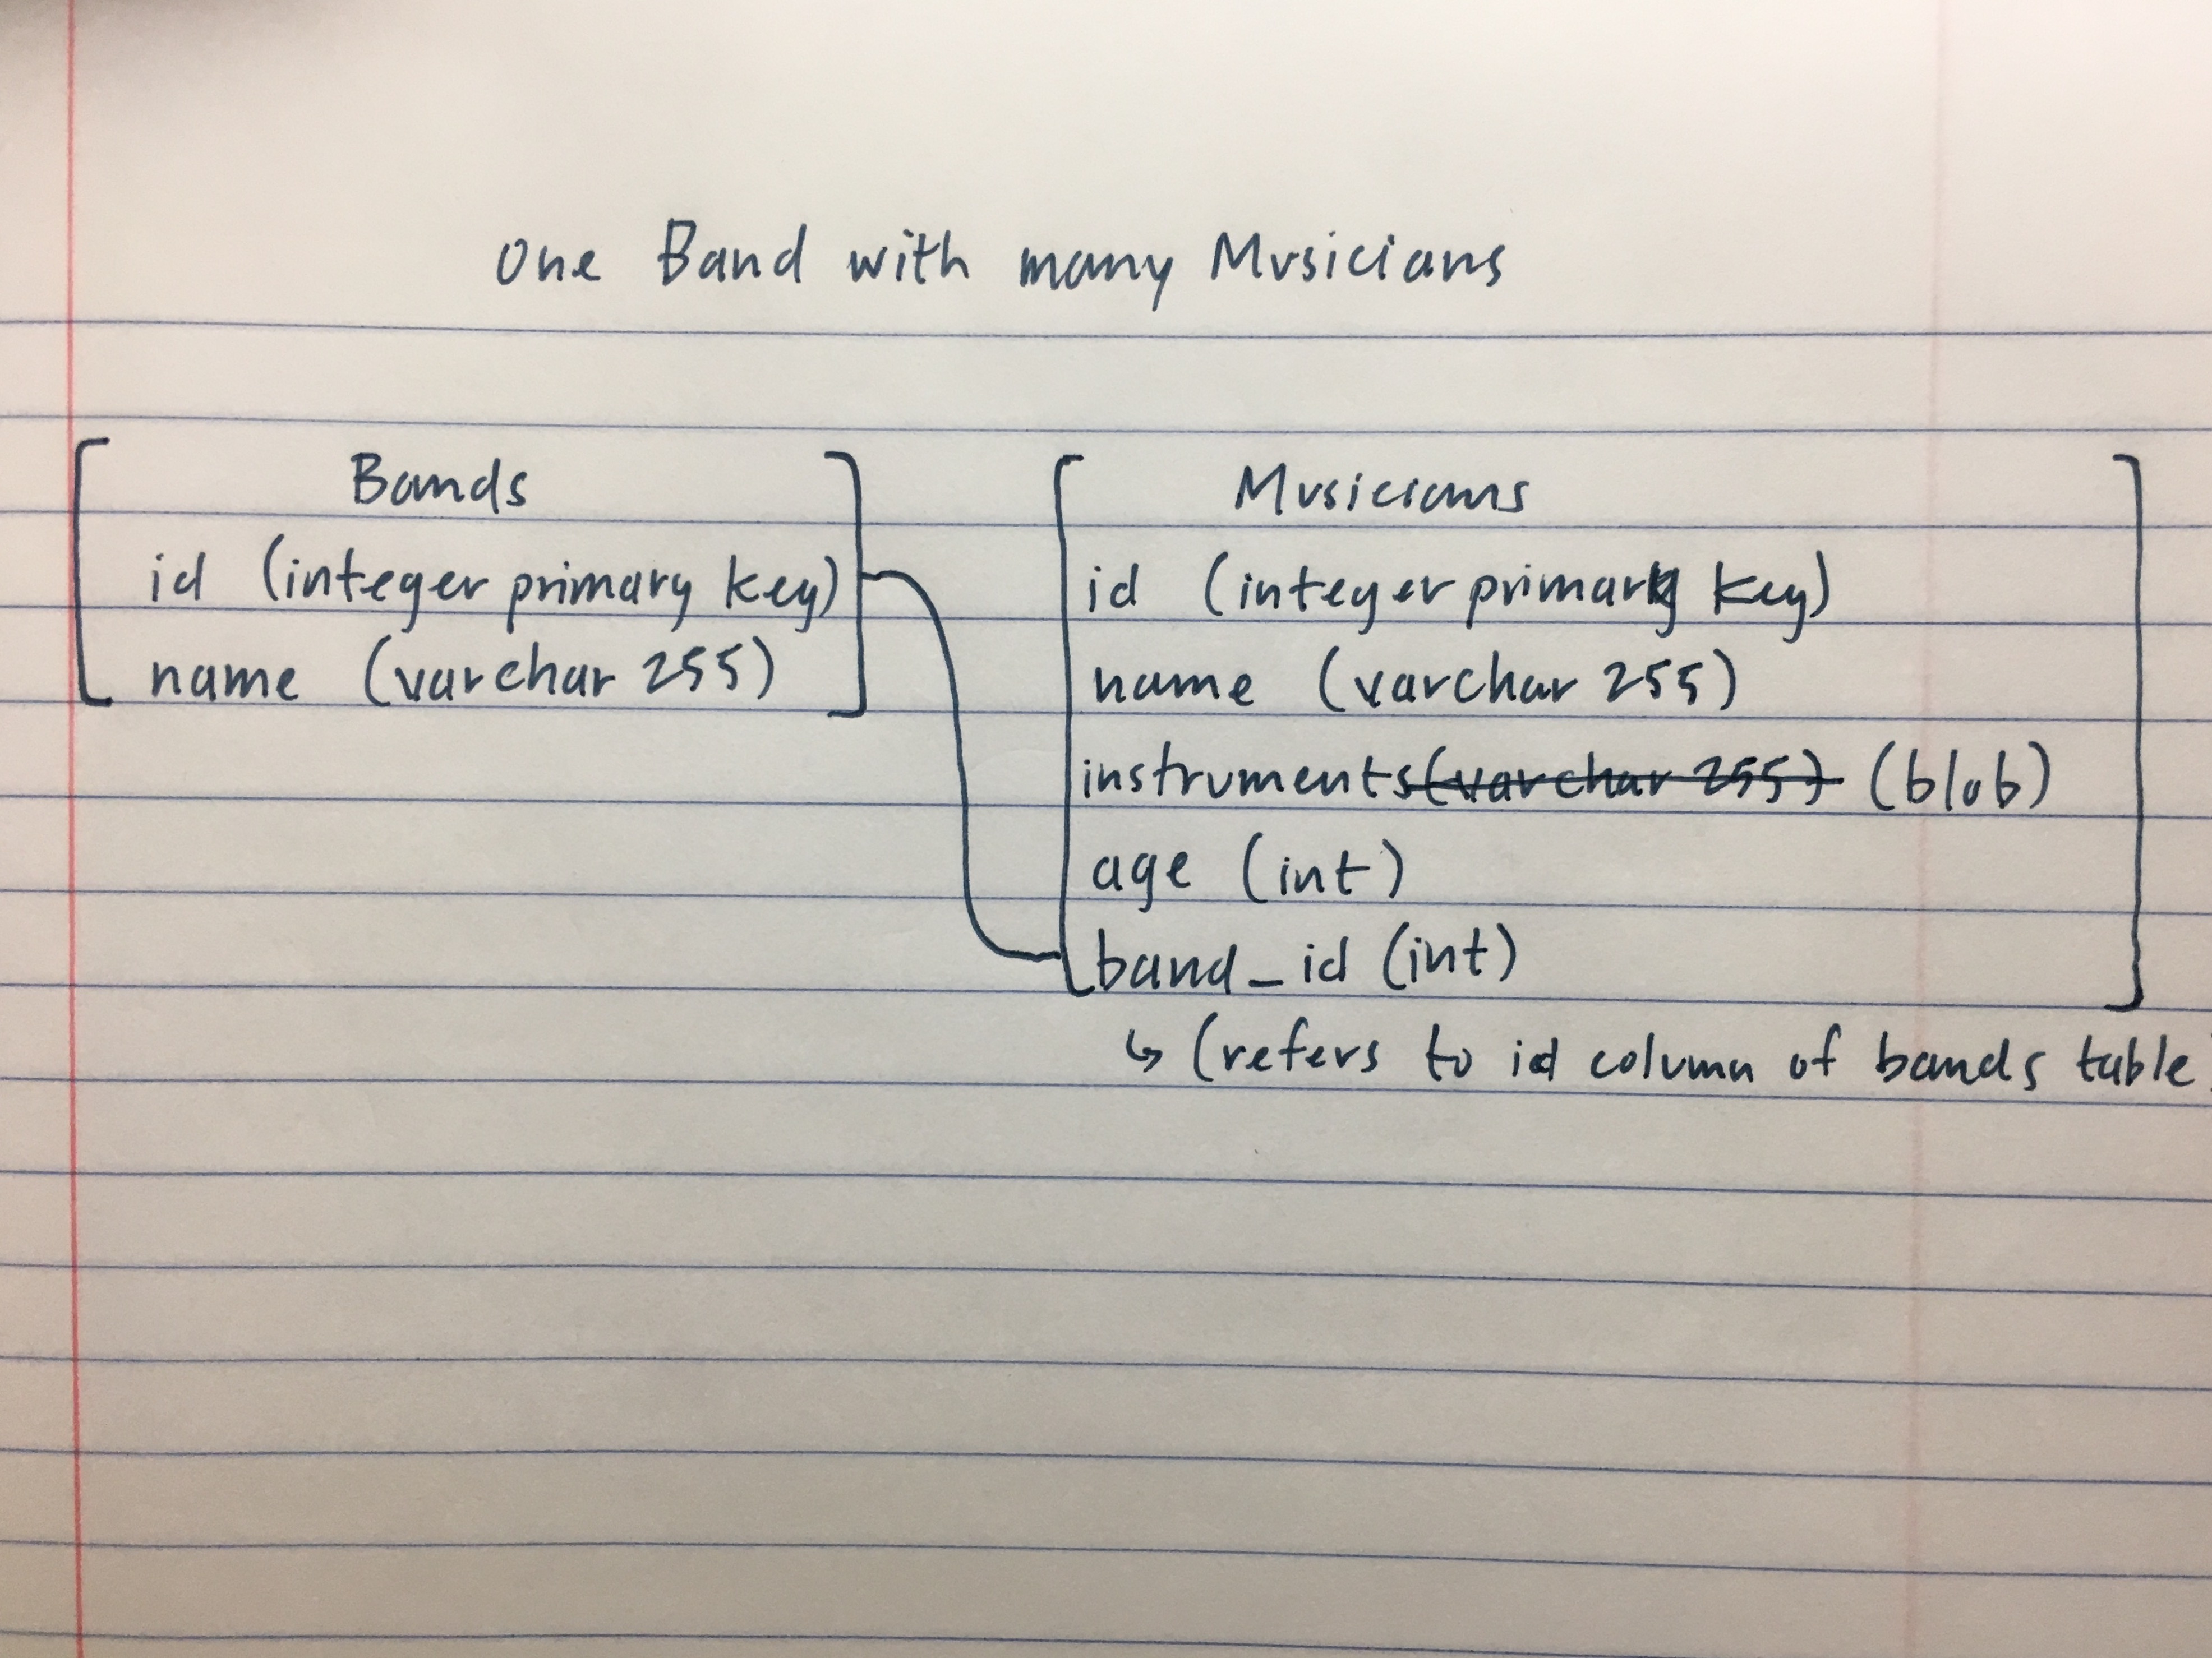 One Band with many Musicians
Bands
id (integer primary key)
name (varchar 255)
Musicians
id (integer primary key)
name (varchar 255)
instruments (varchar 255) (blob)
age (int)
band_id (int)
↳ (refers to id column of bands table)